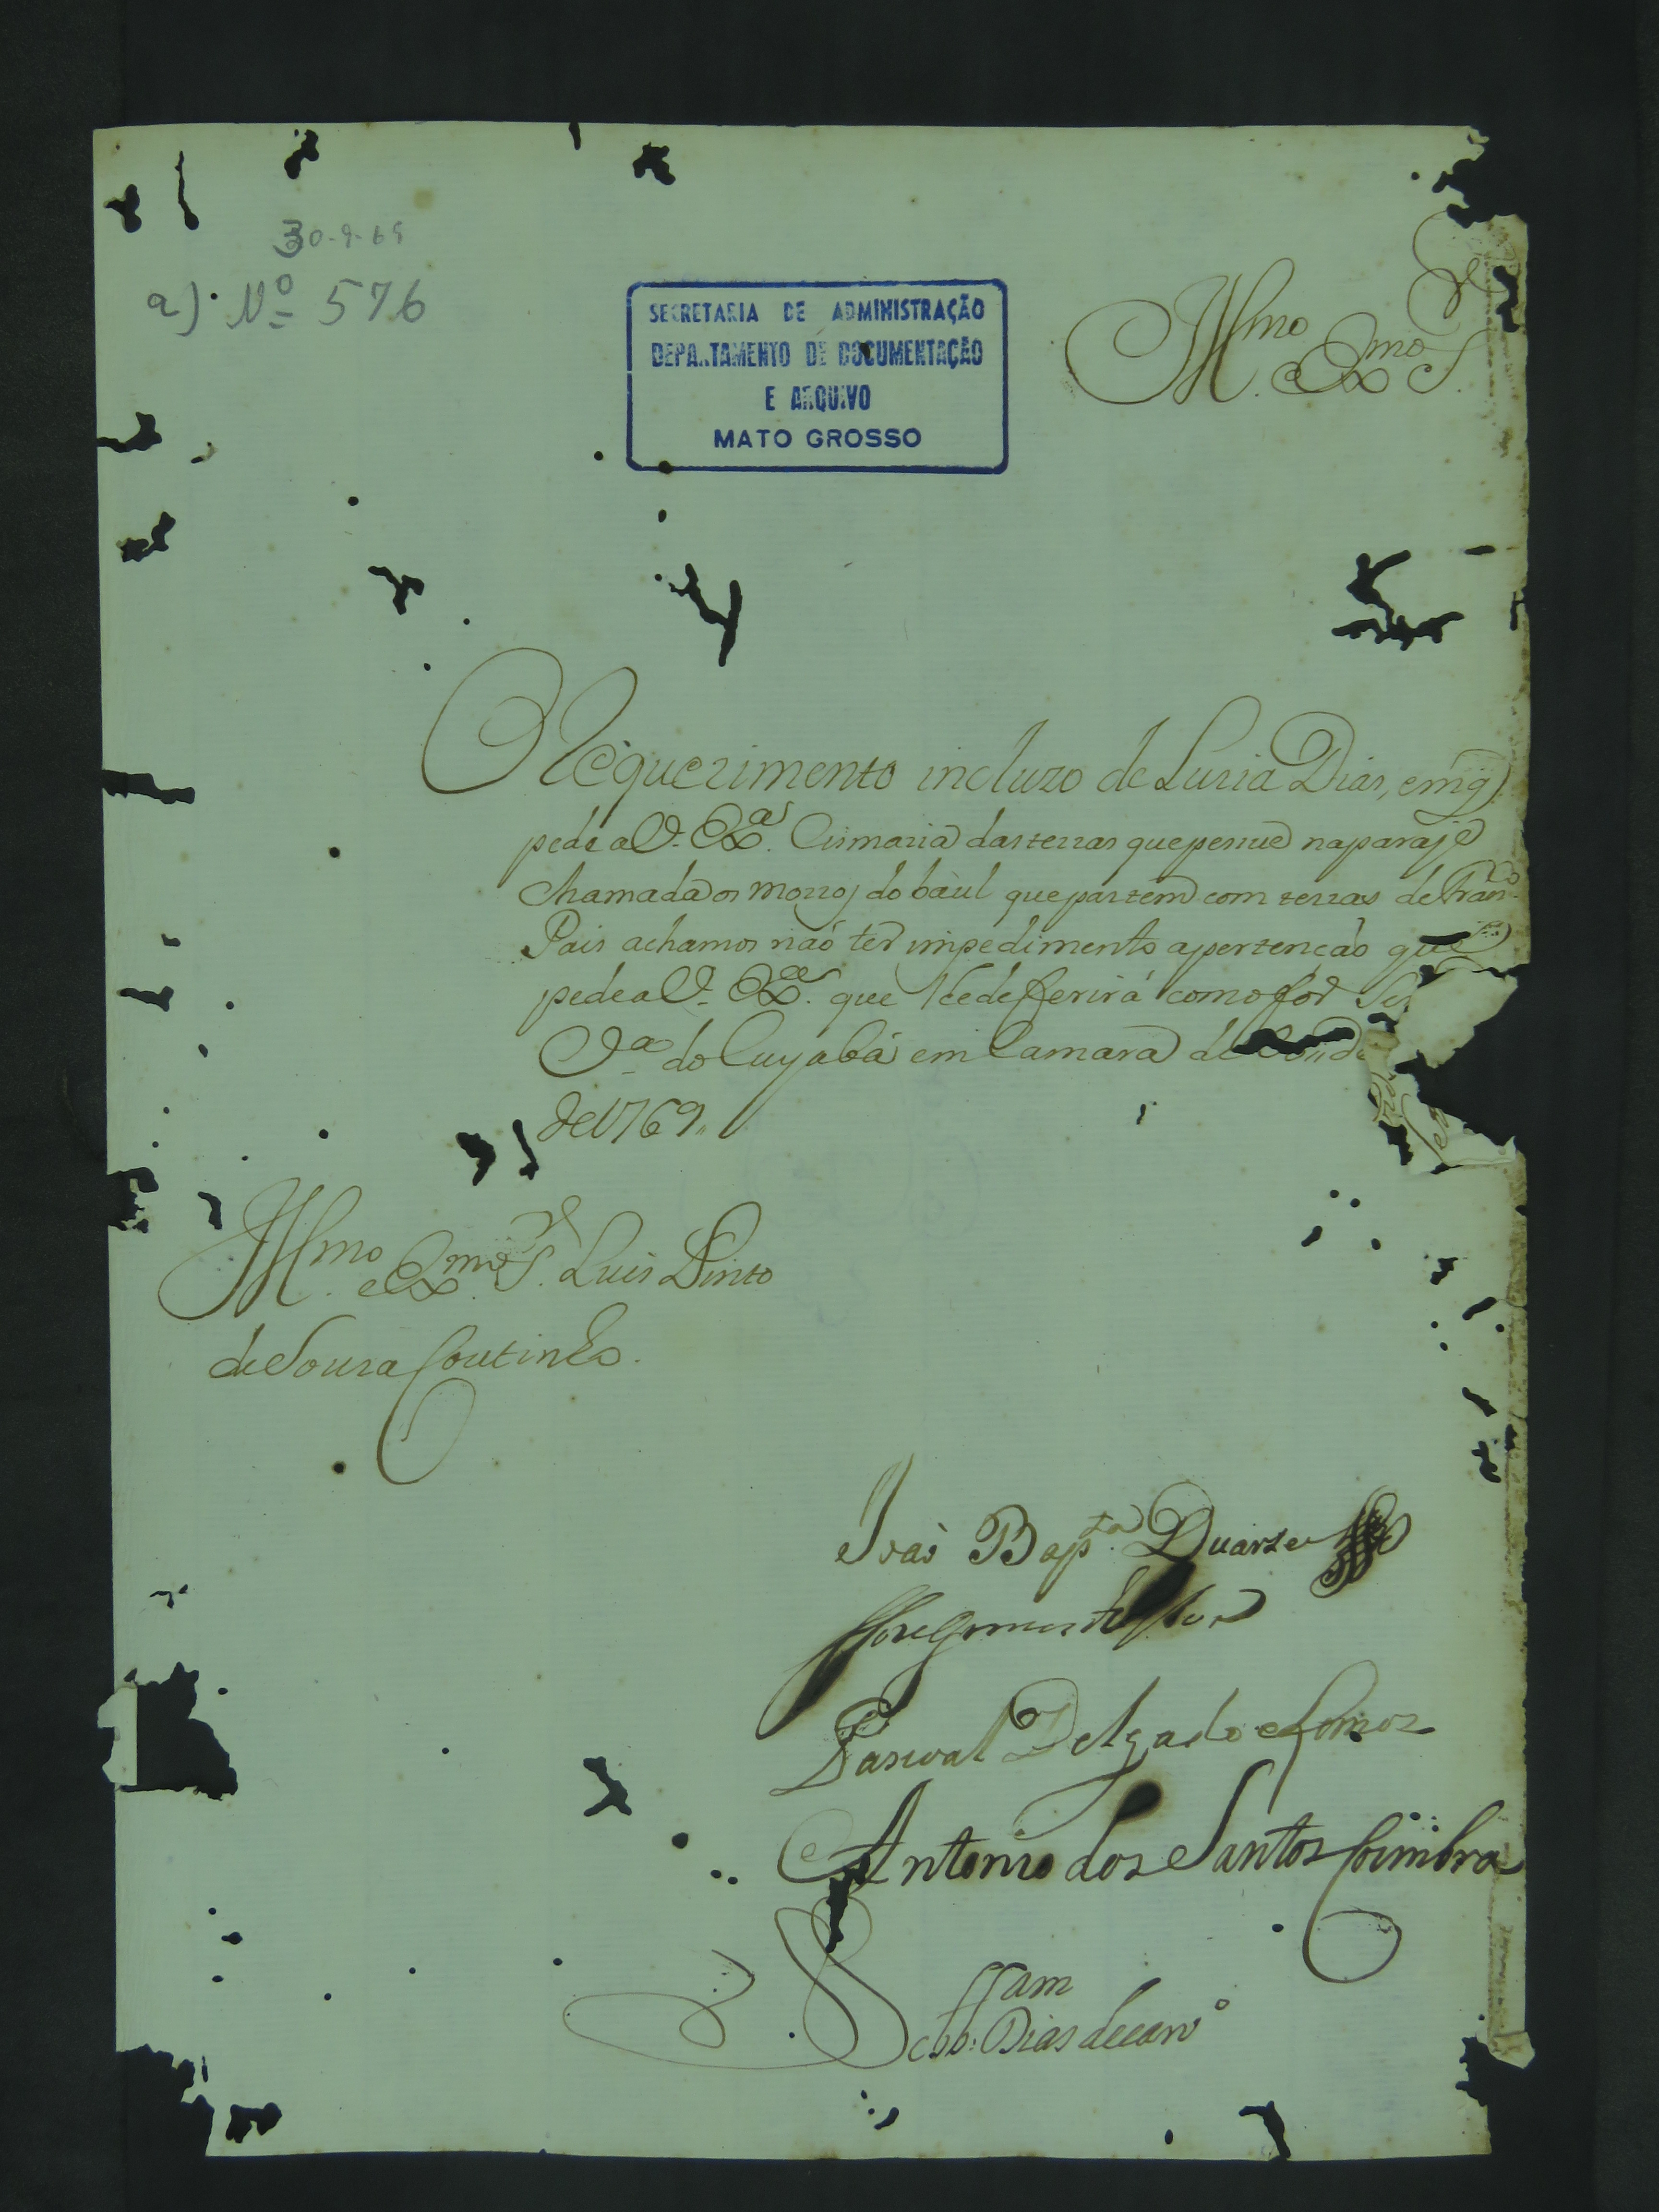 30-9-69
a) Nº 576
SECRETARIA DE ADMINISTRAÇÃO
DEPARTAMENTO DE DOCUMENTAÇÃO
E ARQUIVO
MATO GROSSO
Illmo. e Exmo. Sr.
O Requerimento incluzo de Luzia Dias, em q
pede a V. Exa. Cismaria das terras que pessue na paraje
chamada os morros do baúl que partem com terras de Fran.co
Pais achamos naó ter impedimento apertenção que
pede a V. Exa. que lhe defferirá como for
Va. do Cuyabá em Camara de
de 1769
Illmo. e Exmo. Sr. Luis Pinto
de Souza Coutinho.
Joaó Bapta. Duarte
Pascoal Delgado e Lemos
Antonio dos Santos Coimbra